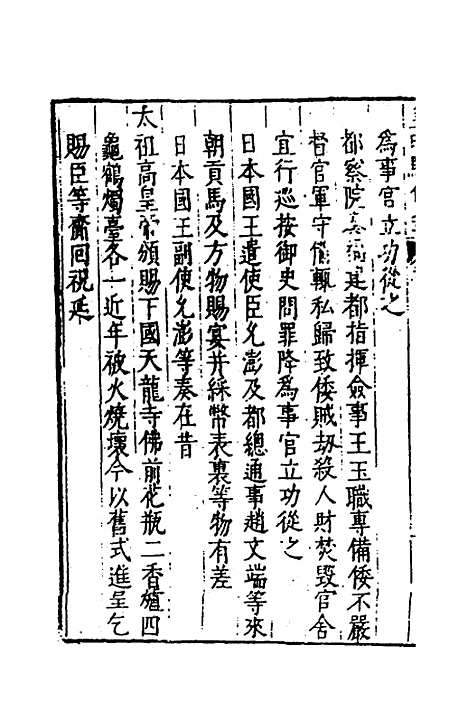 為事官立功從之
都察院奏福建都指揮僉事王玉職專備倭不嚴
督官軍守備輒私歸致倭賊劫殺人財焚毀官舍
宜行巡按御史問罪降為事官立功從之
日本國王遣使臣允澎及都總通事趙文端等來
朝貢馬及方物賜宴并綵幣表裏等物有差
日本國王副使允澎等奏在昔
太祖高皇帝頒賜下國天龍寺佛前花瓶二香爐四
龜鶴燭臺各一近年被火燒壞今以舊式進呈乞
賜臣等齎回祝延